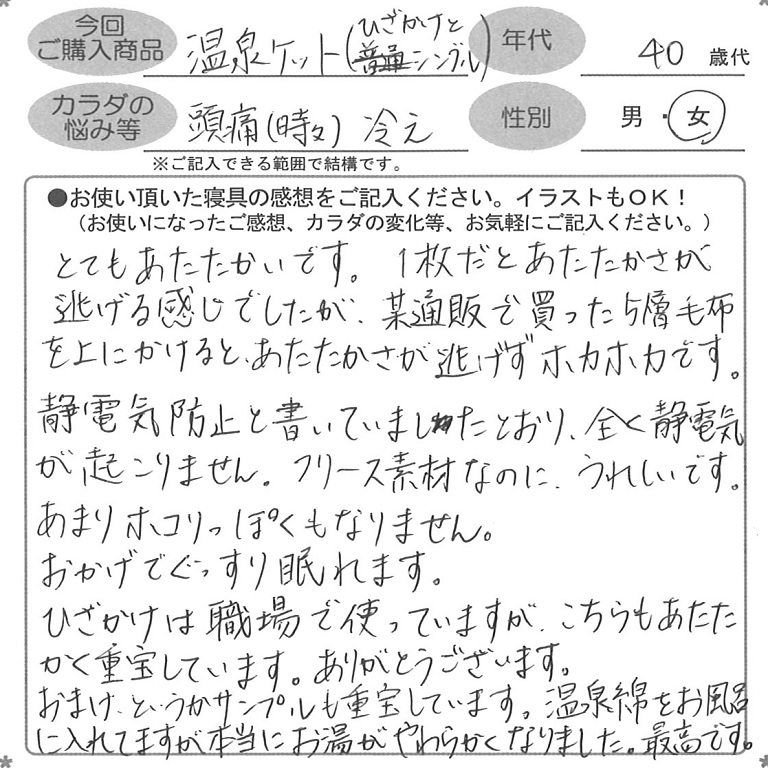 今回
ご購入商品
温泉ケット(ひざかけと
普通シングル)
年代
40 歳代
カラダの
悩み等
頭痛(時々) 冷え
性別
男・女
※ご記入できる範囲で結構です。
●お使い頂いた寝具の感想をご記入ください。イラストもOK!
(お使いになったご感想、カラダの変化等、お気軽にご記入ください。)
とてもあたたかいです。1枚だとあたたかさが
逃げる感じでしたが、某通販で買った5層毛布
を上にかけると、あたたかさが逃げずホカホカです。
静電気防止と書いていましたとおり、全く静電気
が起こりません。フリース素材なのに、うれしいです。
あまりホコリっぽくもなりません。
おかげでぐっすり眠れます。
ひざかけは職場で使っていますが、こちらもあたた
かく重宝しています。ありがとうございます。
おまけ、というかサンプルも重宝しています。温泉綿をお風呂
に入れてますが本当にお湯がやわらかくなりました。最高です。